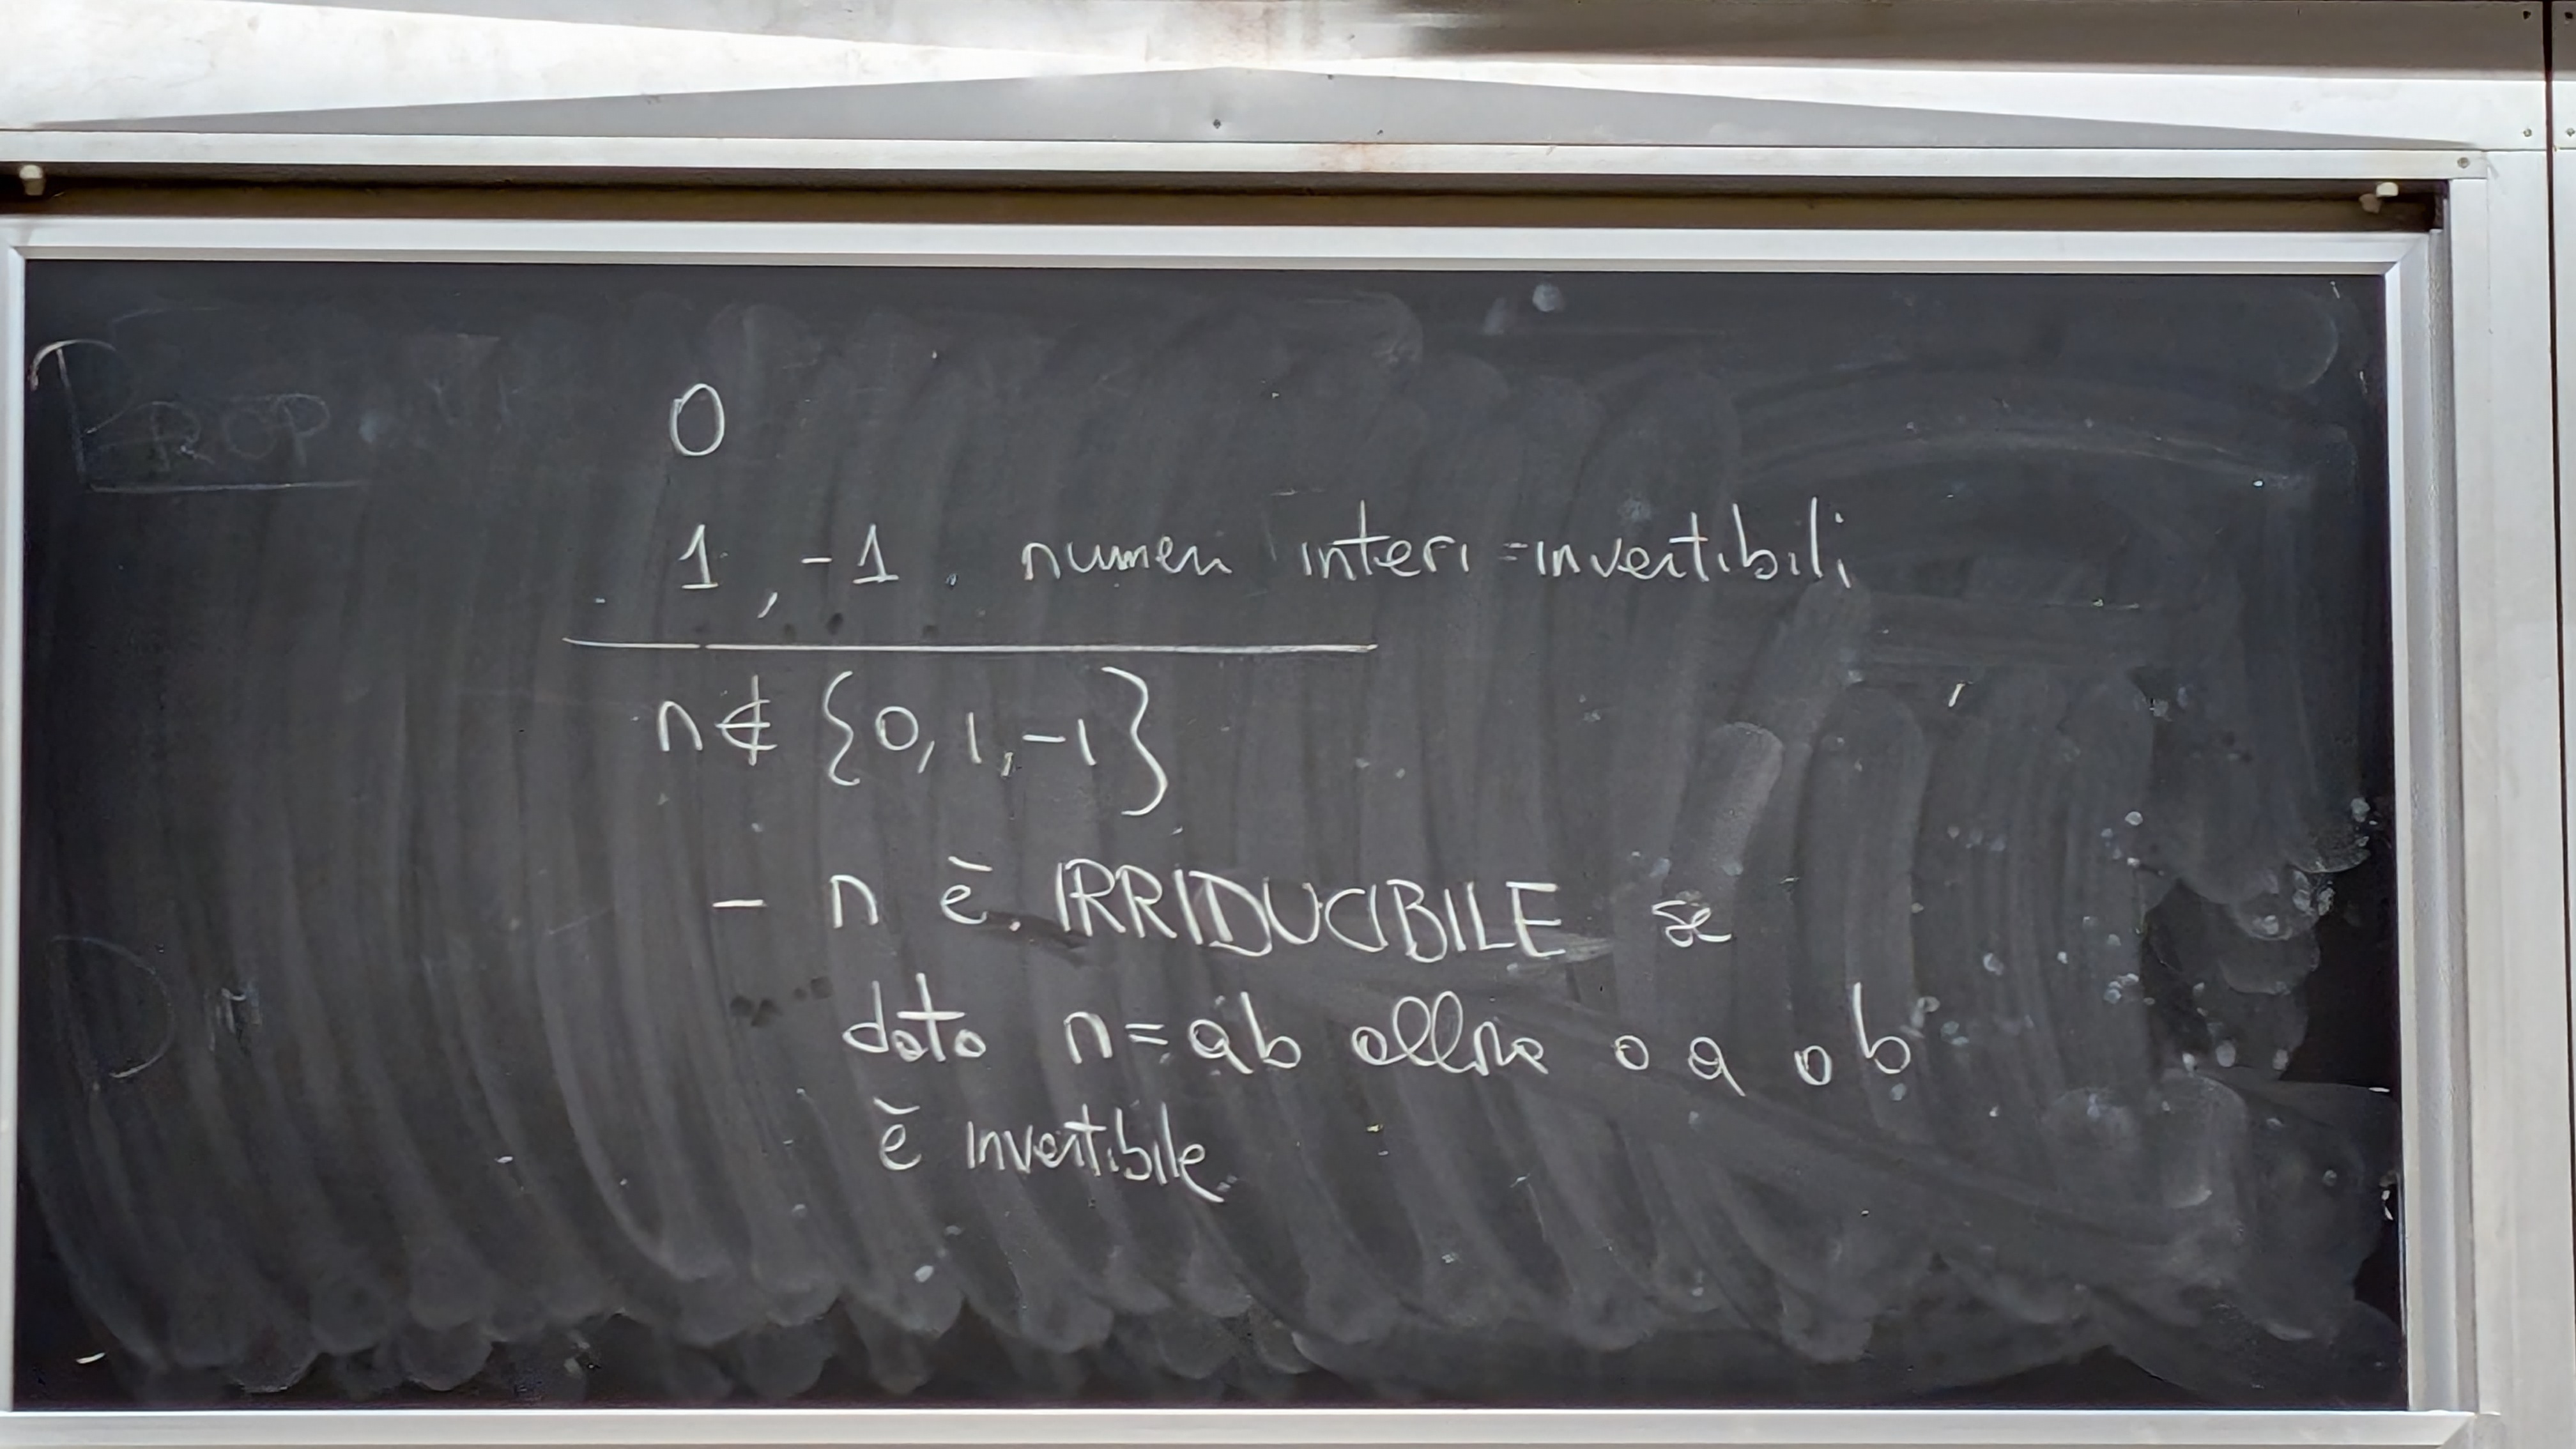 PROP
0
1, -1. numeri interi invertibili
n ∉ {0, 1, -1}
- n è IRRIDUCIBILE se
dato n = ab allora o a o b
è invertibile